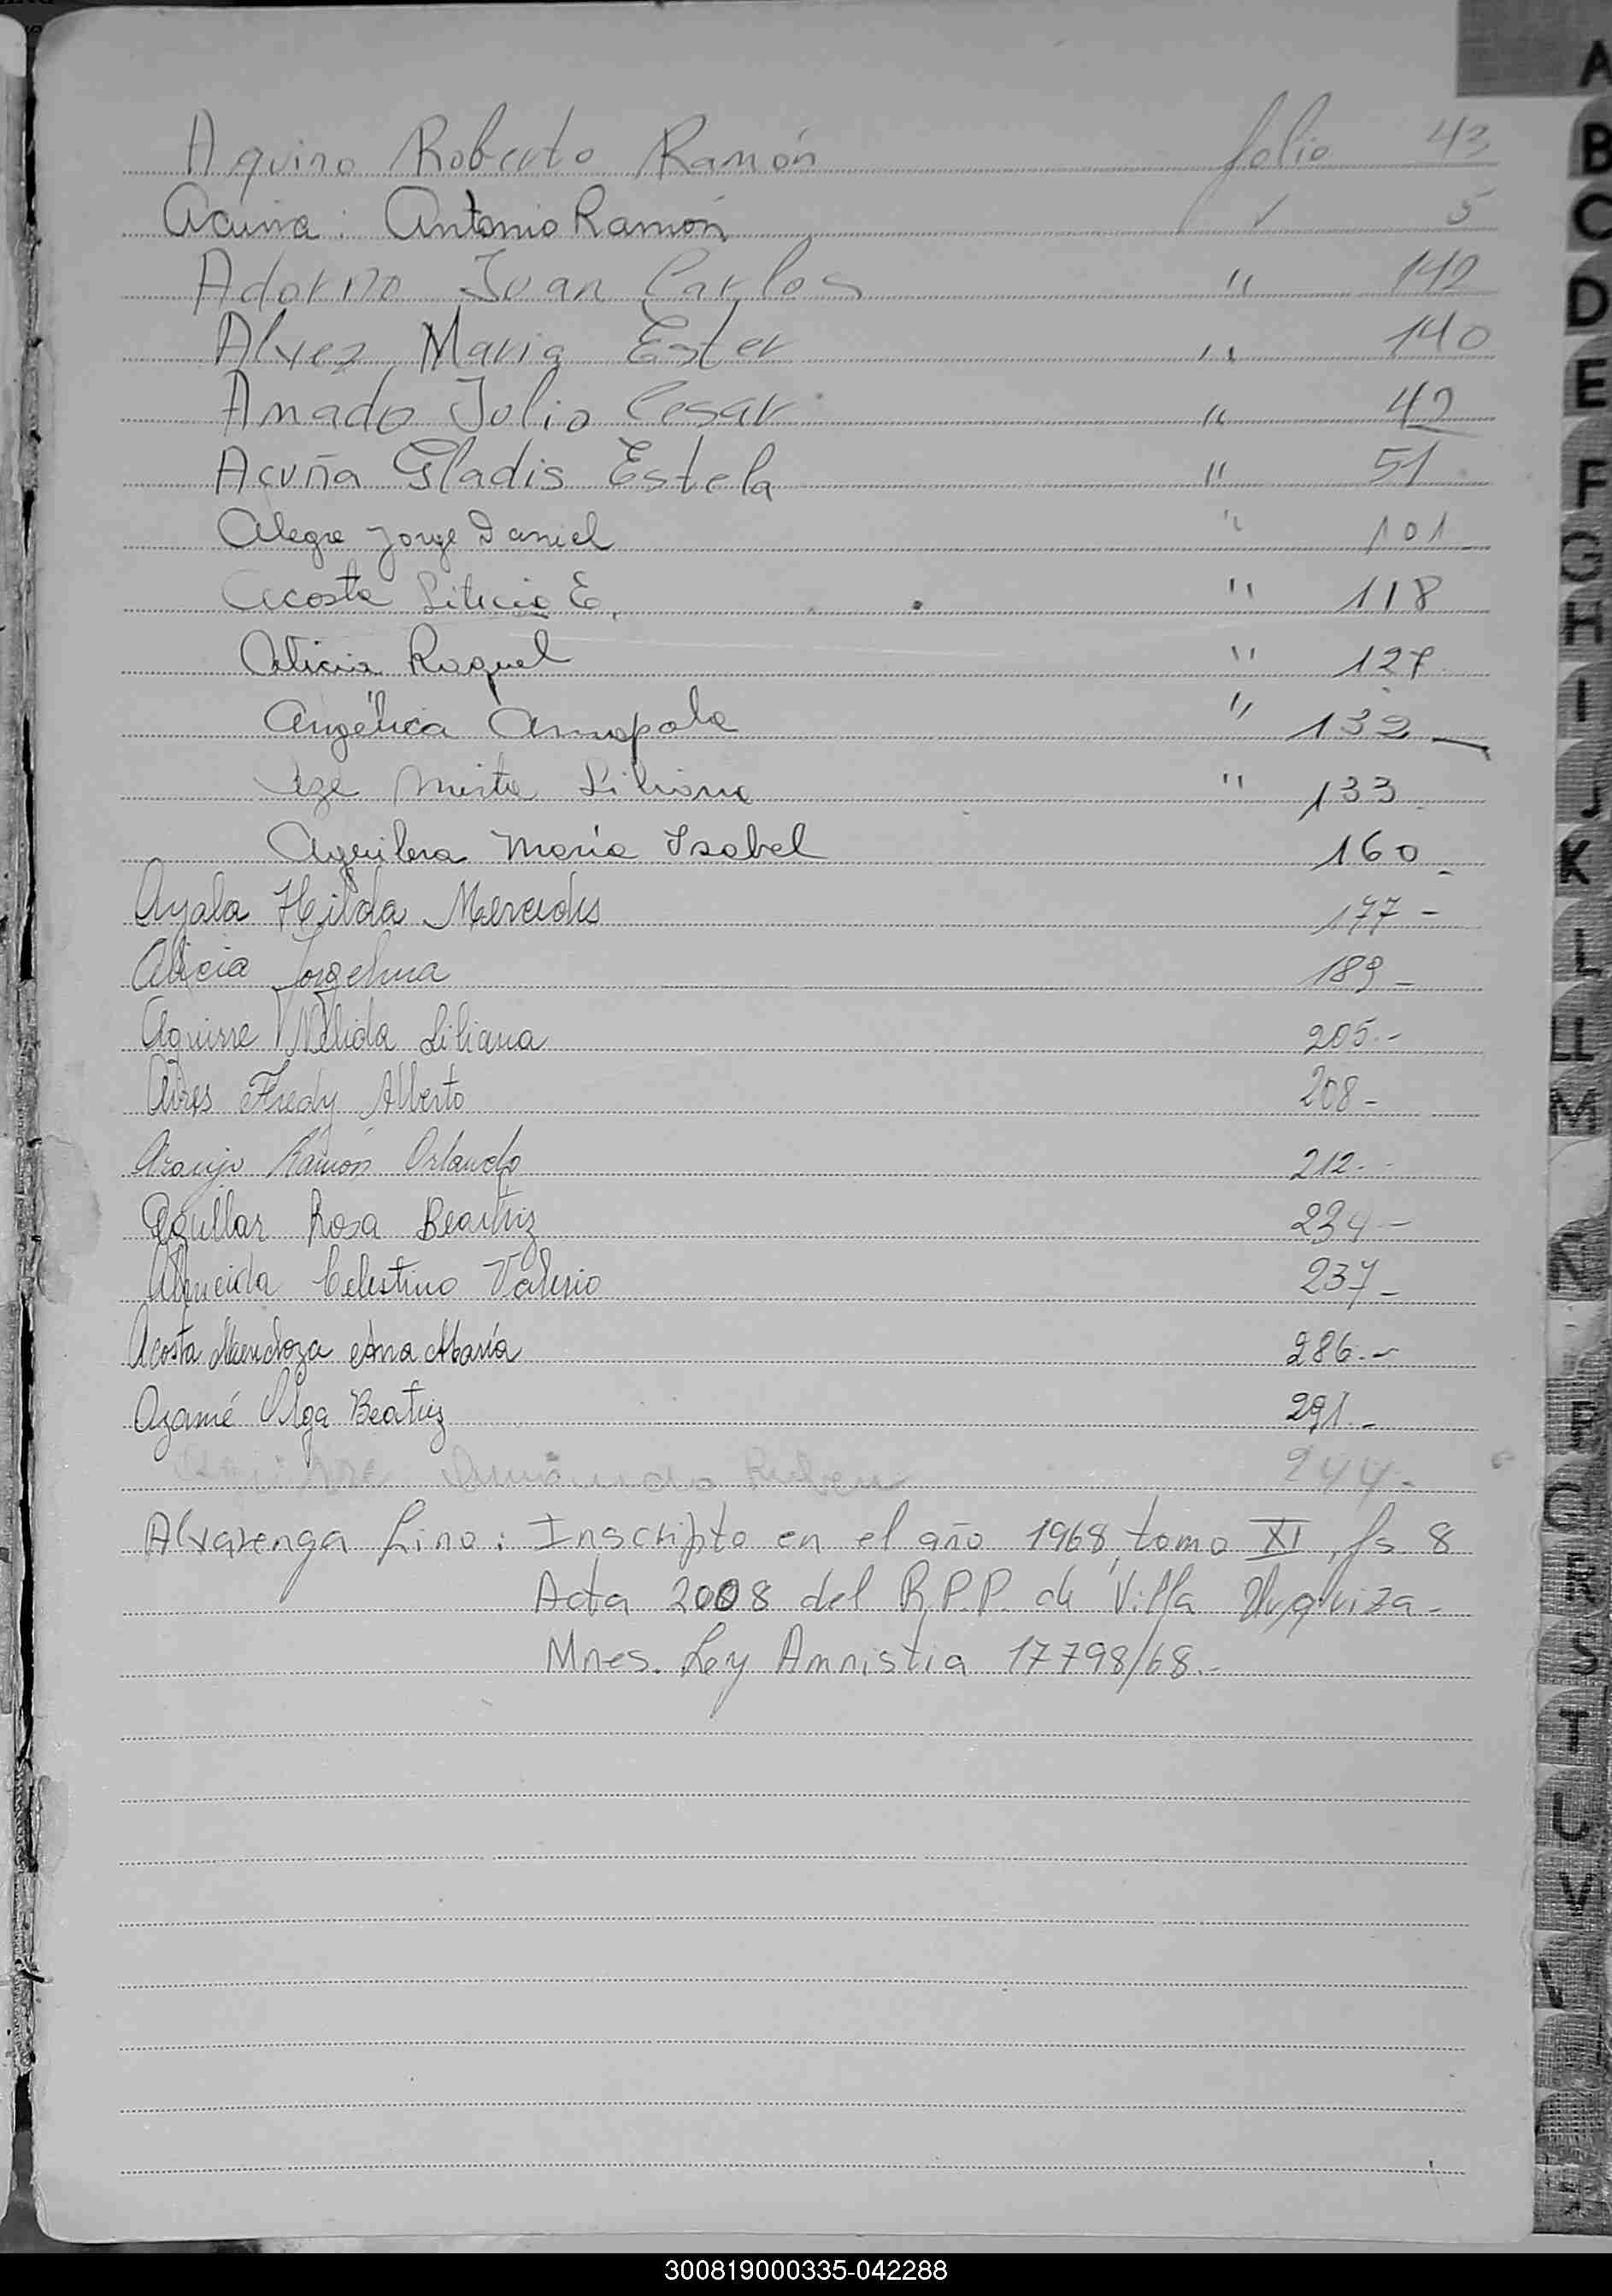 Aquino Roberto Ramón folio 43
Acuña : Antonio Ramón ✓ 5
Adorno Juan Carlos " 142
Alvez Maria Ester " 140
Amado Julio Cesar " 42
Acuña Gladis Estela " 51
Alegre Jorge Daniel " 101
Acosta Leticia E. " 118
Alicia Raquel " 127
Angélica Amapola " 132
Mirta Liliana " 133
Aguilera María Isabel 160
Ayala Hilda Mercedes 177 -
Alicia Jorgelina 189 -
Aguirre Nélida Liliana 205.-
Aires Fredy Alberto 208 -
Araujo Ramón Orlando 212.-
Aguilar Rosa Beatriz 234 -
Almeida Celestino Valerio 237 -
Acosta Mendoza Ana María 286.-
Azamé Olga Beatriz 291.-
Ruben 244.-
Alvarenga Lino: Inscripto en el año 1968, tomo XI, fs 8
Acta 2008 del R.P.P. de Villa Urquiza -
Mnes. Ley Amnistia 17798/68.-
A
B
C
D
E
F
G
H
I
J
K
L
LL
M
N
P
Q
S
T
U
V
300819000335-042288